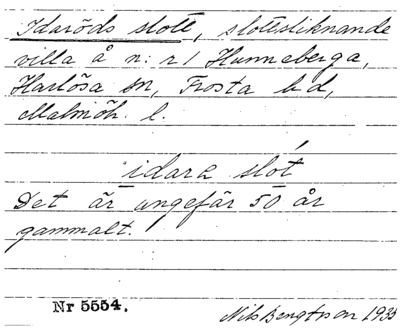 Idaröds slott, slottsliknande
villa å n:r 1 Hunneberga,
Harlösa sn, Frosta hd,
Malmöh. l.
idara slót
Det är ungefär 50 år
gammalt.
Nr 5554.
Nils Bengtson 1933